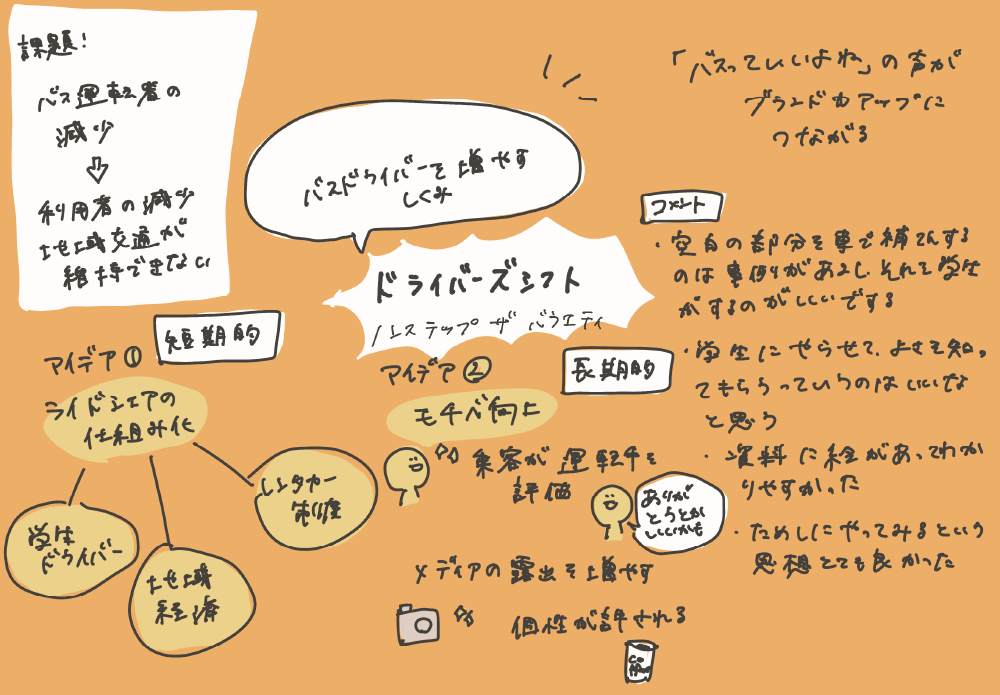 課題!
バス運転者の
減少
利用者の減少
地域交通が
維持できない
バスドライバーを増やす
しくみ
「バスっていいよね」の声が
ブランド力アップに
つながる
ドライバーズシフト
バラエティ
短期的
アイデア①
ライドシェアの
仕組み化
学生
ドライバー
地域
経済
レンタカー
制度
長期的
アイデア②
モチベ向上
乗客が運転手を
評価
ありが
とうとか
いいかも
メディアの露出を増やす
個性が許される
コメント
・空白の部分を車で補てんする
のは事例があるし、それを学生
がするのがいいですね
・学生にやらせて、よさを知っ
てもらうっていうのはいいな
と思う
・資料に絵があってわか
りやすかった
・ためしにやってみるという
思想とても良かった